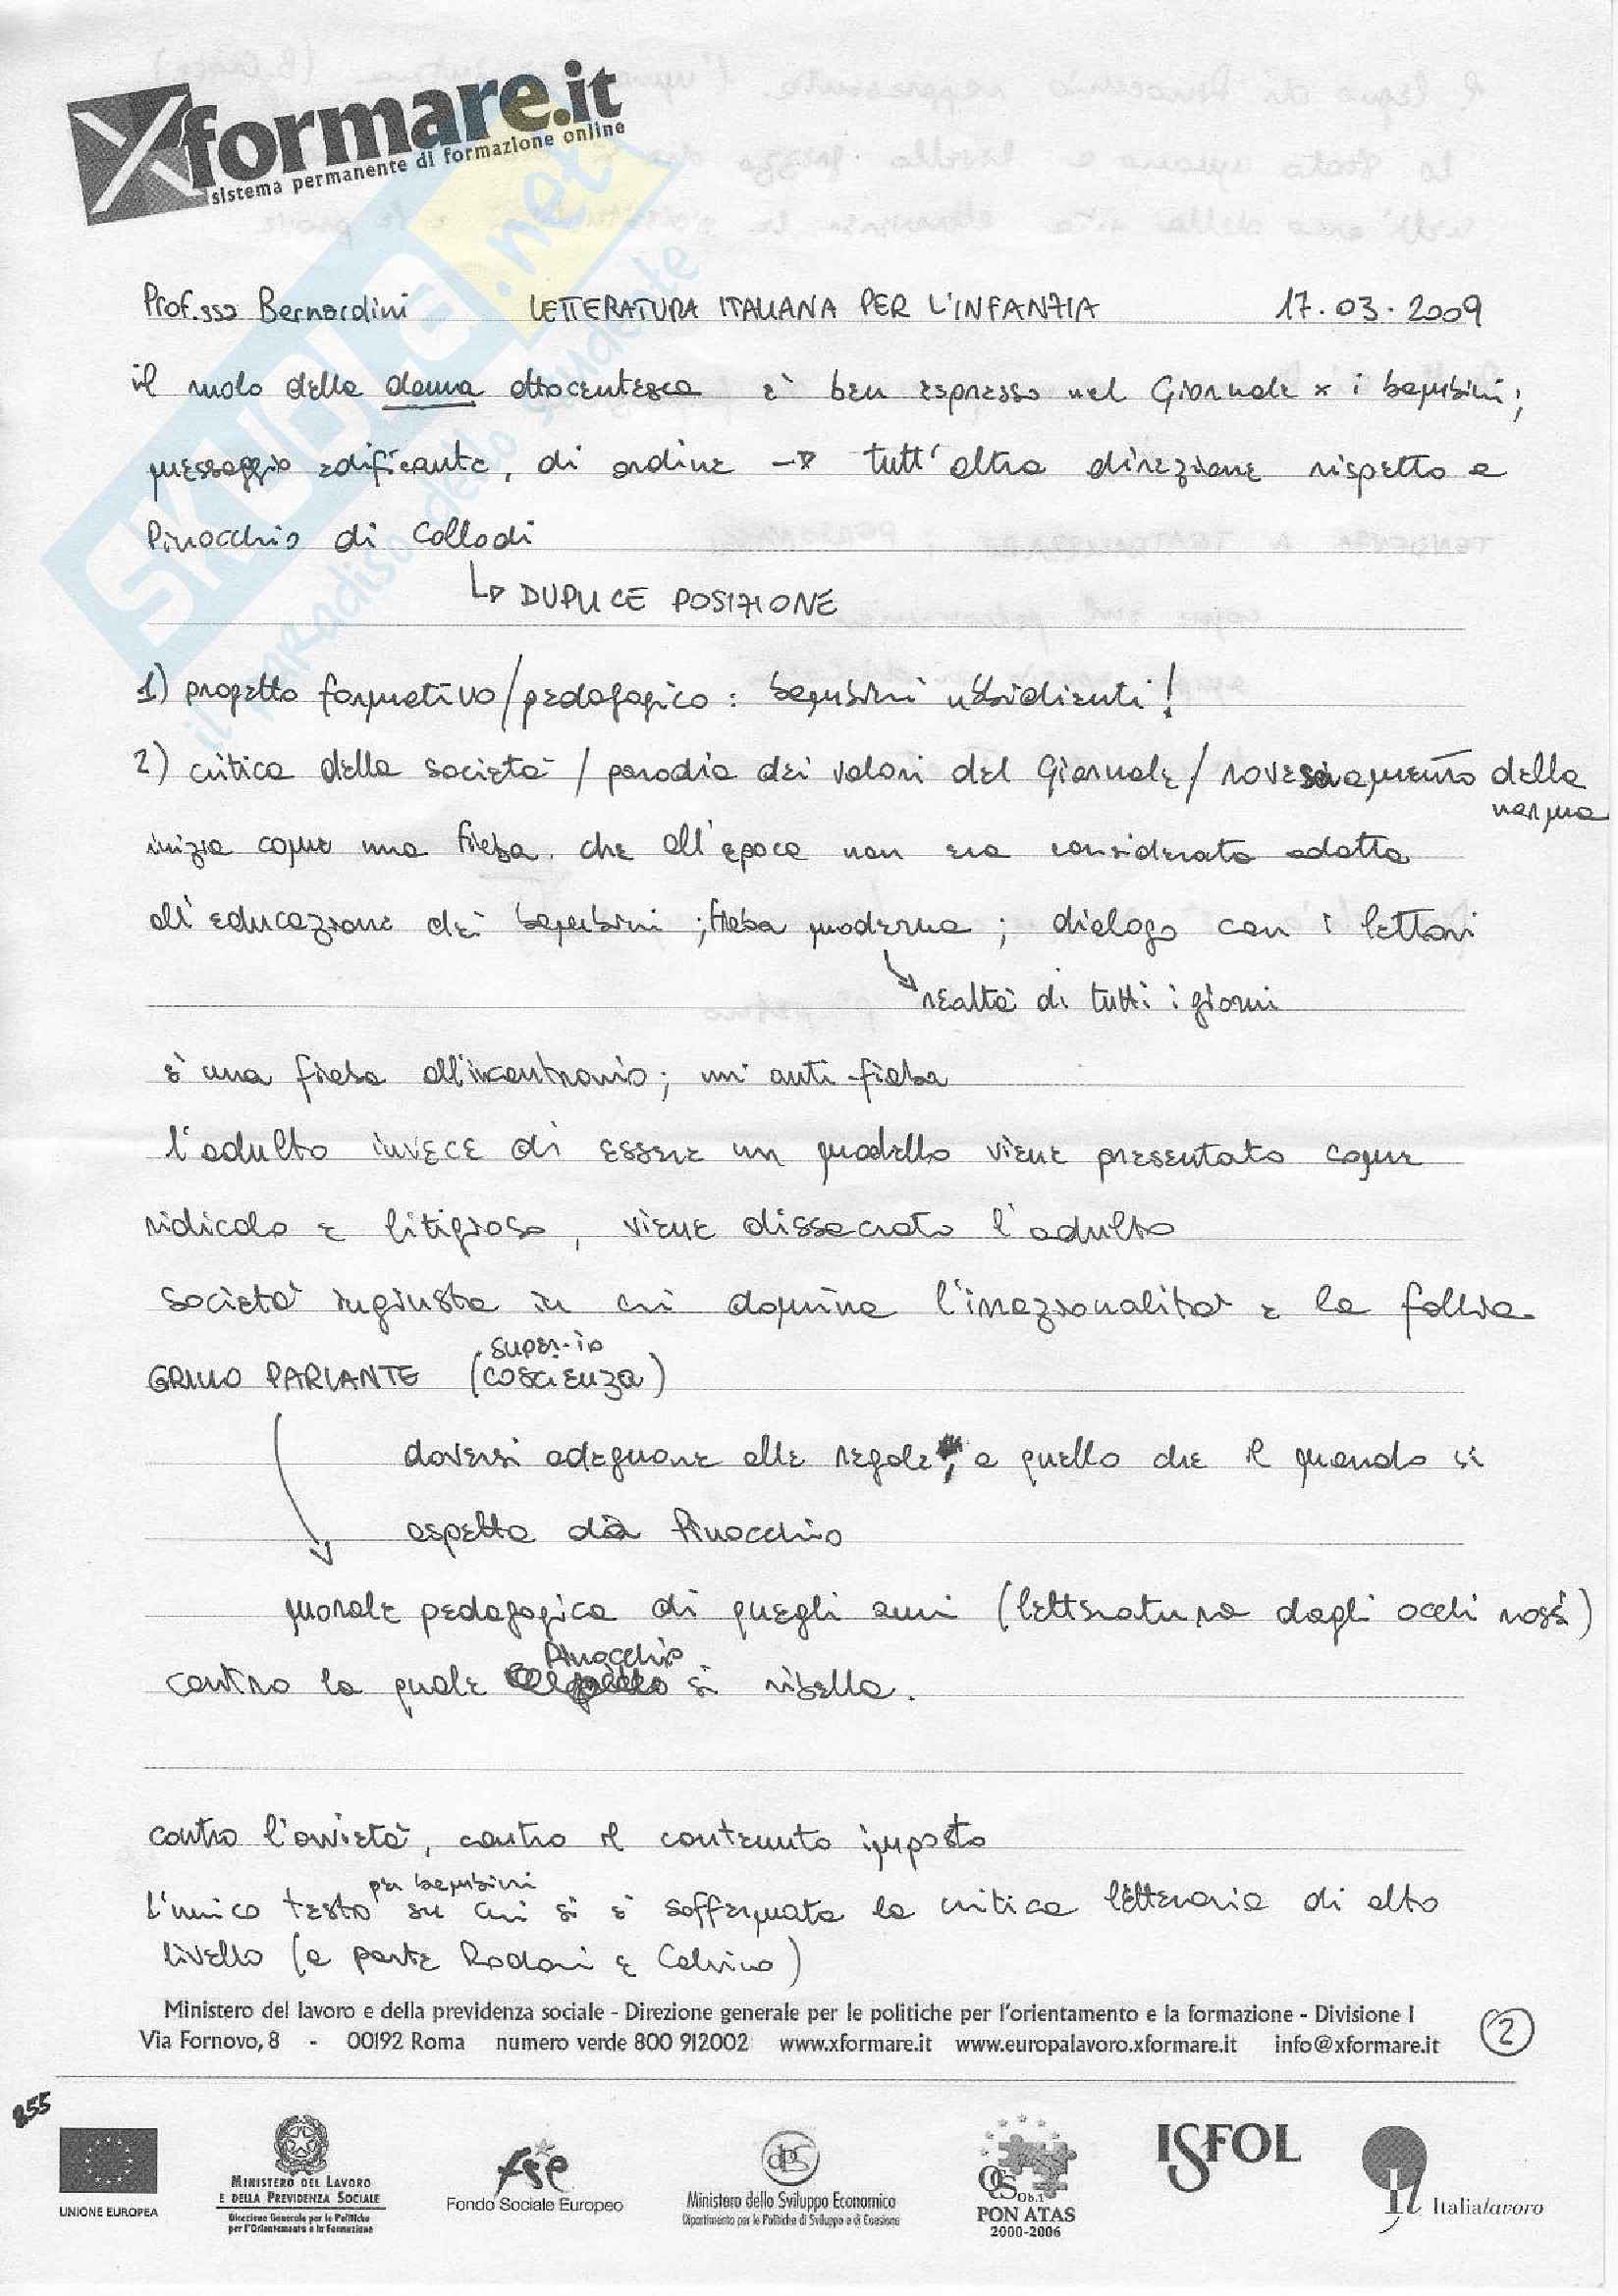 Xformare.it
sistema permanente di formazione online
SKUOLA.net
il paradiso dello studente
Prof.ssa Bernardini LETTERATURA ITALIANA PER L'INFANZIA 17.03.2009
il ruolo della donna ottocentesca è ben espresso nel Giornale x i bambini;
messaggio edificante, di ordine → tutt'altra direzione rispetto a
Pinocchio di Collodi
↳ DUPLICE POSIZIONE
1) progetto formativo/pedagogico: bambini ubbidienti!
2) critica della società / parodia dei valori del Giornale / rovesciamento della
norma
inizia come una fiaba che all'epoca non era considerata adatta
all'educazione dei bambini; fiaba moderna; dialogo con i lettori
↘ realtà di tutti i giorni
è una fiaba all'incontrario; un'anti-fiaba
l'adulto invece di essere un modello viene presentato come
ridicolo e litigioso, viene dissacrato l'adulto
società ingiusta in cui domina l'irrazionalità e la follia
super-io
GRILLO PARLANTE (coscienza)
doversi adeguare alle regole, a quello che il mondo si
aspetta da Pinocchio
morale pedagogica di quegli anni (letteratura dagli occhi rossi)
Pinocchio
contro la quale si ribella.
contro l'ovvietà, contro il contenuto imposto
per bambini
l'unico testo su cui si è soffermata la critica letteraria di alto
livello (a parte Rodari e Calvino)
Ministero del lavoro e della previdenza sociale - Direzione generale per le politiche per l'orientamento e la formazione - Divisione I
Via Fornovo, 8 - 00192 Roma numero verde 800 912002 www.xformare.it www.europalavoro.xformare.it info@xformare.it
2
855
UNIONE EUROPEA
MINISTERO DEL LAVORO
E DELLA PREVIDENZA SOCIALE
Direzione Generale per le Politiche
per l'Orientamento e la Formazione
fse
Fondo Sociale Europeo
dps
Ministero dello Sviluppo Economico
Dipartimento per le Politiche di Sviluppo e di Coesione
QCS Ob.1
PON ATAS
2000-2006
ISFOL
Il
Italialavoro